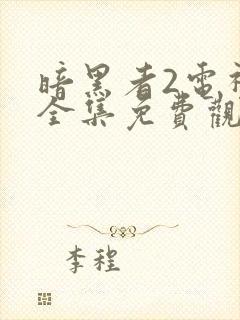 暗黑者2電視
全集免費觀
李程